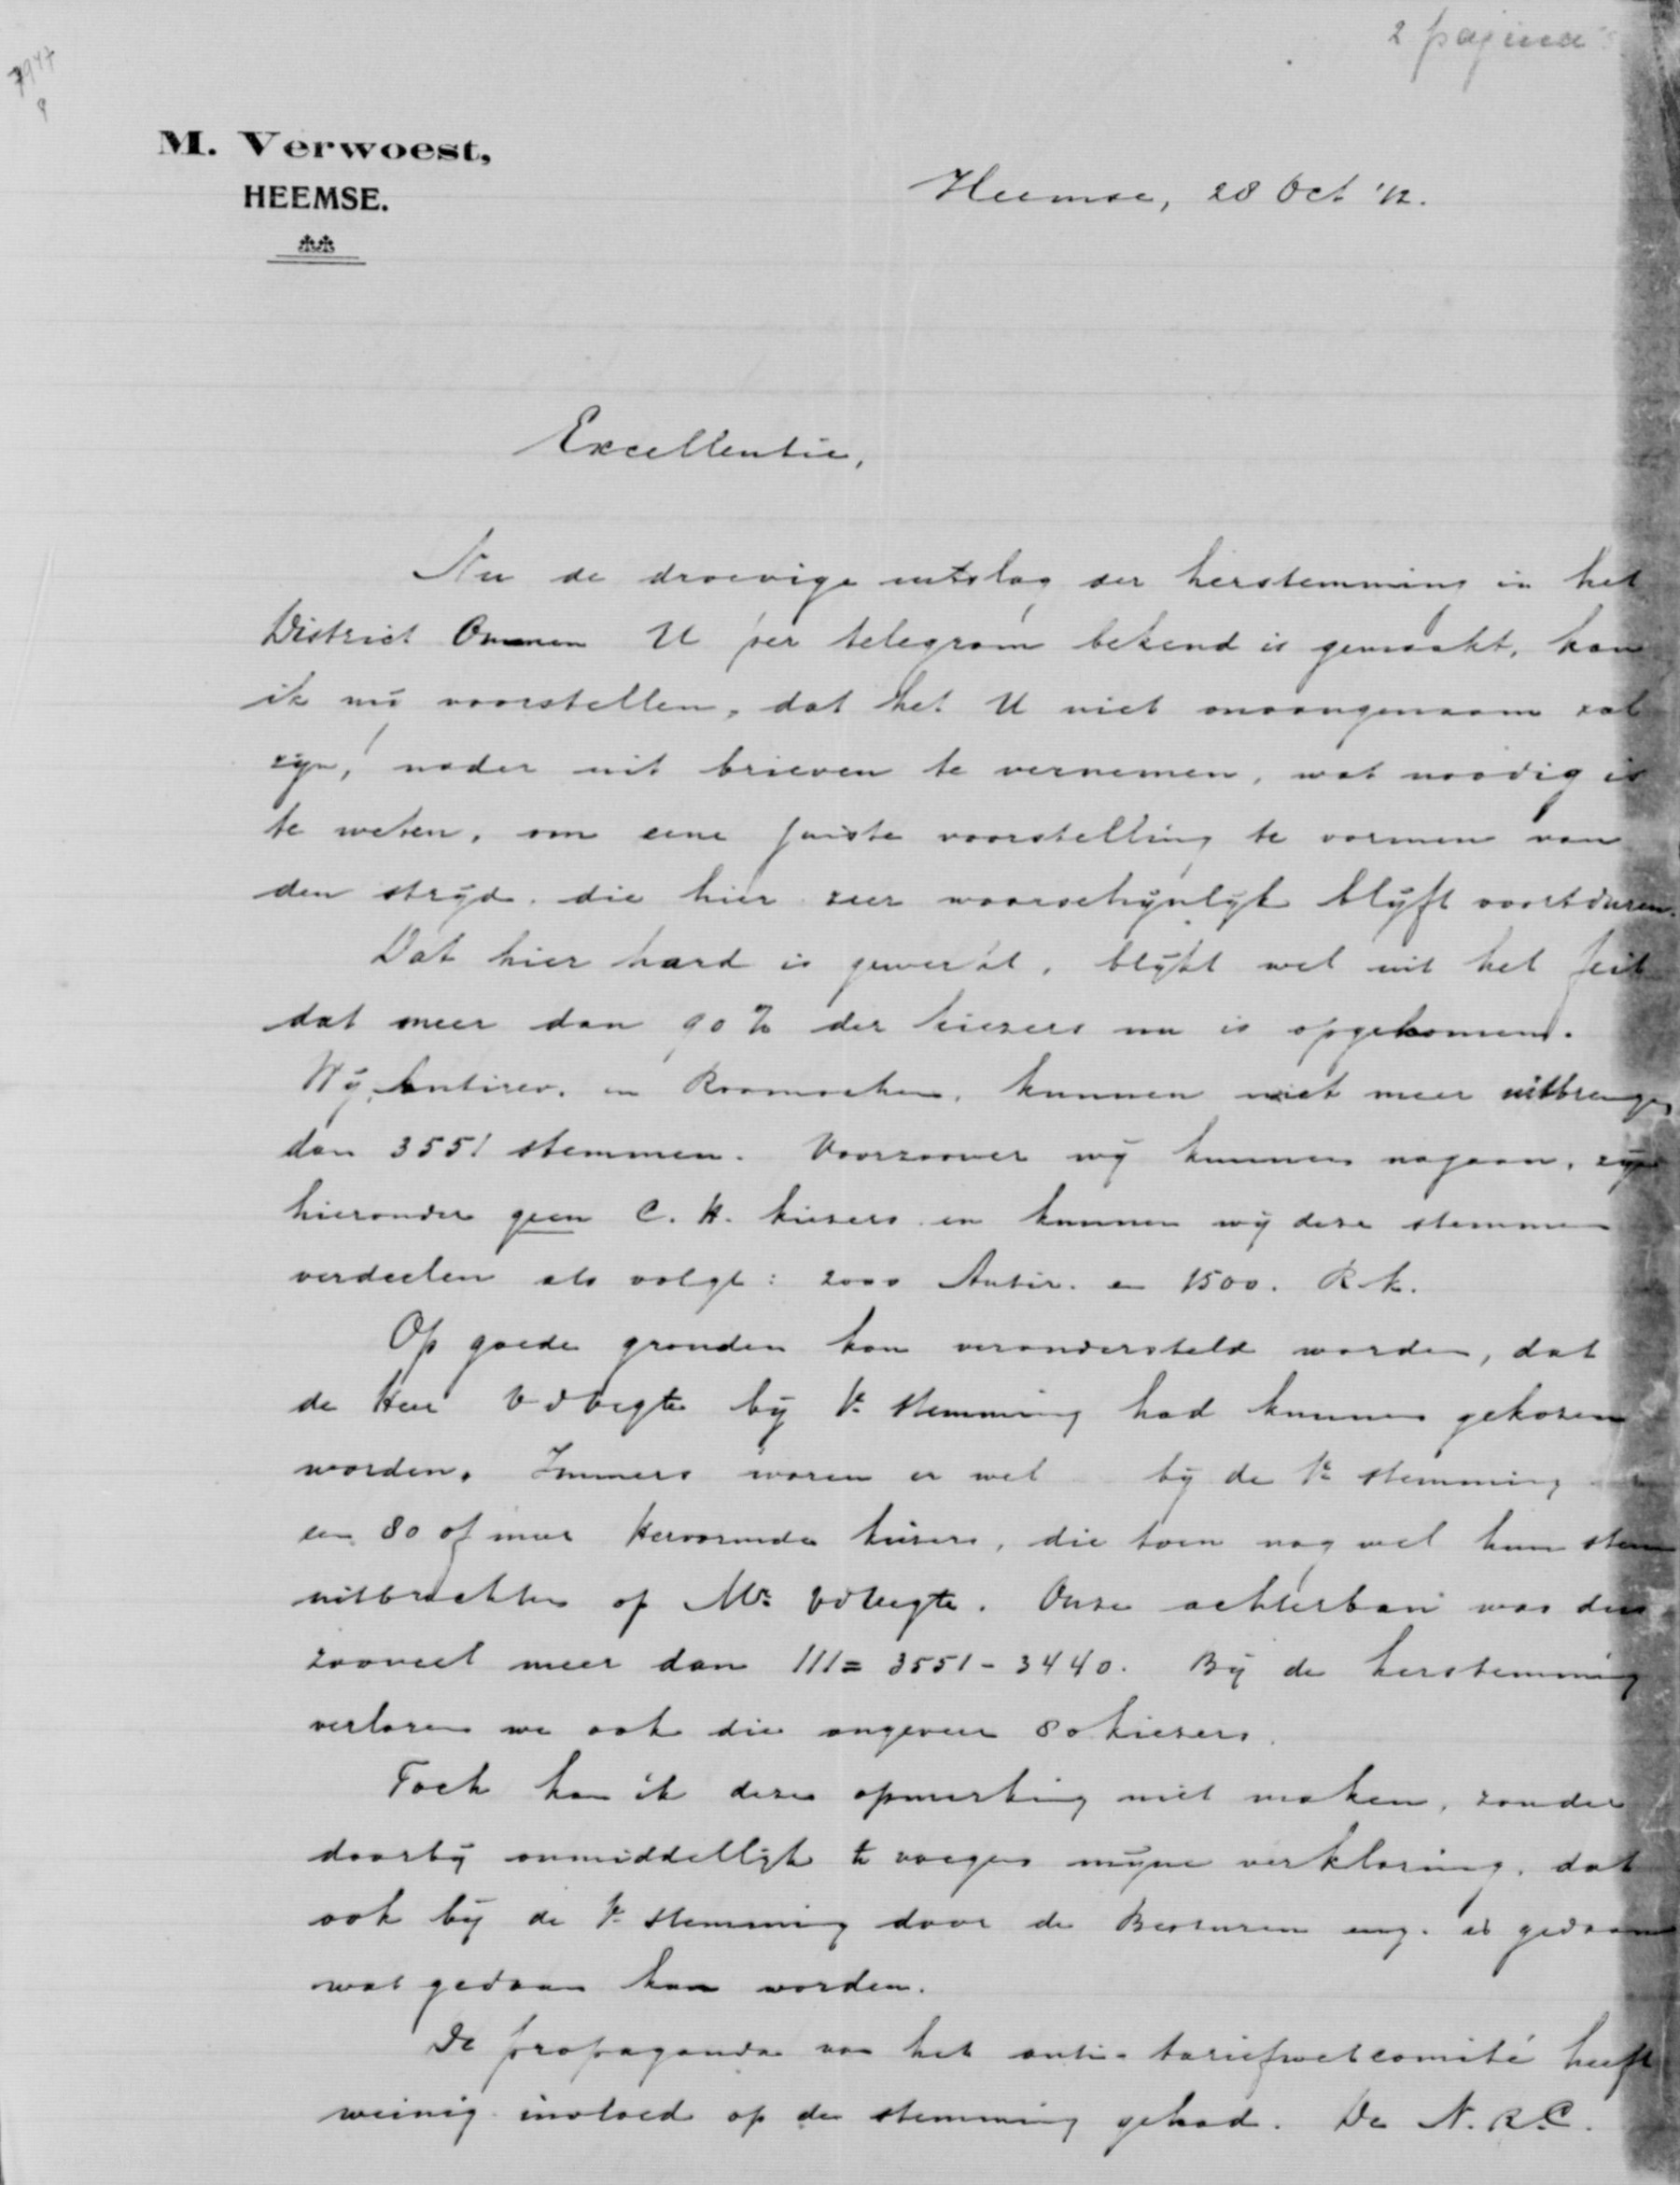 2 pagina's
7947
9
M. Verwoest,
HEEMSE.
Heemse, 28 Oct '12.
Excellentie,
Nu de droevige uitslag der herstemming in het
District Ommen U per telegram bekend is gemaakt, kan
ik mij voorstellen, dat het U niet onaangenaam zal
zijn, nader uit brieven te vernemen, wat noodig is
te weten, om eene juiste voorstelling te vormen van
den strijd, die hier zeer waarschijnlijk blijft voortduren.
Dat hier hard is gewerkt, blijkt wel uit het feit
dat meer dan 90% der kiezers nu is opgekomen.
Wij, Antirev. en Roomschen, kunnen niet meer uitbrengen
dan 3551 stemmen. Voorzoover wij kunnen nagaan, zijn
hieronder geen C. H. kiezers en kunnen wij deze stemmen
verdeelen als volgt: 2000 Antir. en 1500. R. K.
Op goede gronden kan verondersteld worden, dat
de Heer vd Vegte bij 1e stemming had kunnen gekozen
worden. Immers waren er wel bij de 1e stemming
een 80 of meer Hervormde kiezers, die toen nog wel hun stem
uitbrachten op Mr. vd Vegte. Onze achterban was dus
zooveel meer dan 111 = 3551 - 3440. Bij de herstemming
verloren we ook die ongeveer 80 kiezers.
Toch kan ik deze opmerking niet maken, zonder
daarbij onmiddellijk te voegen mijne verklaring, dat
ook bij de 1e stemming door de Besturen enz. is gedaan
wat gedaan kan worden.
De propaganda van het anti-tariefwetcomité heeft
weinig invloed op de stemming gehad. De N. R. C.